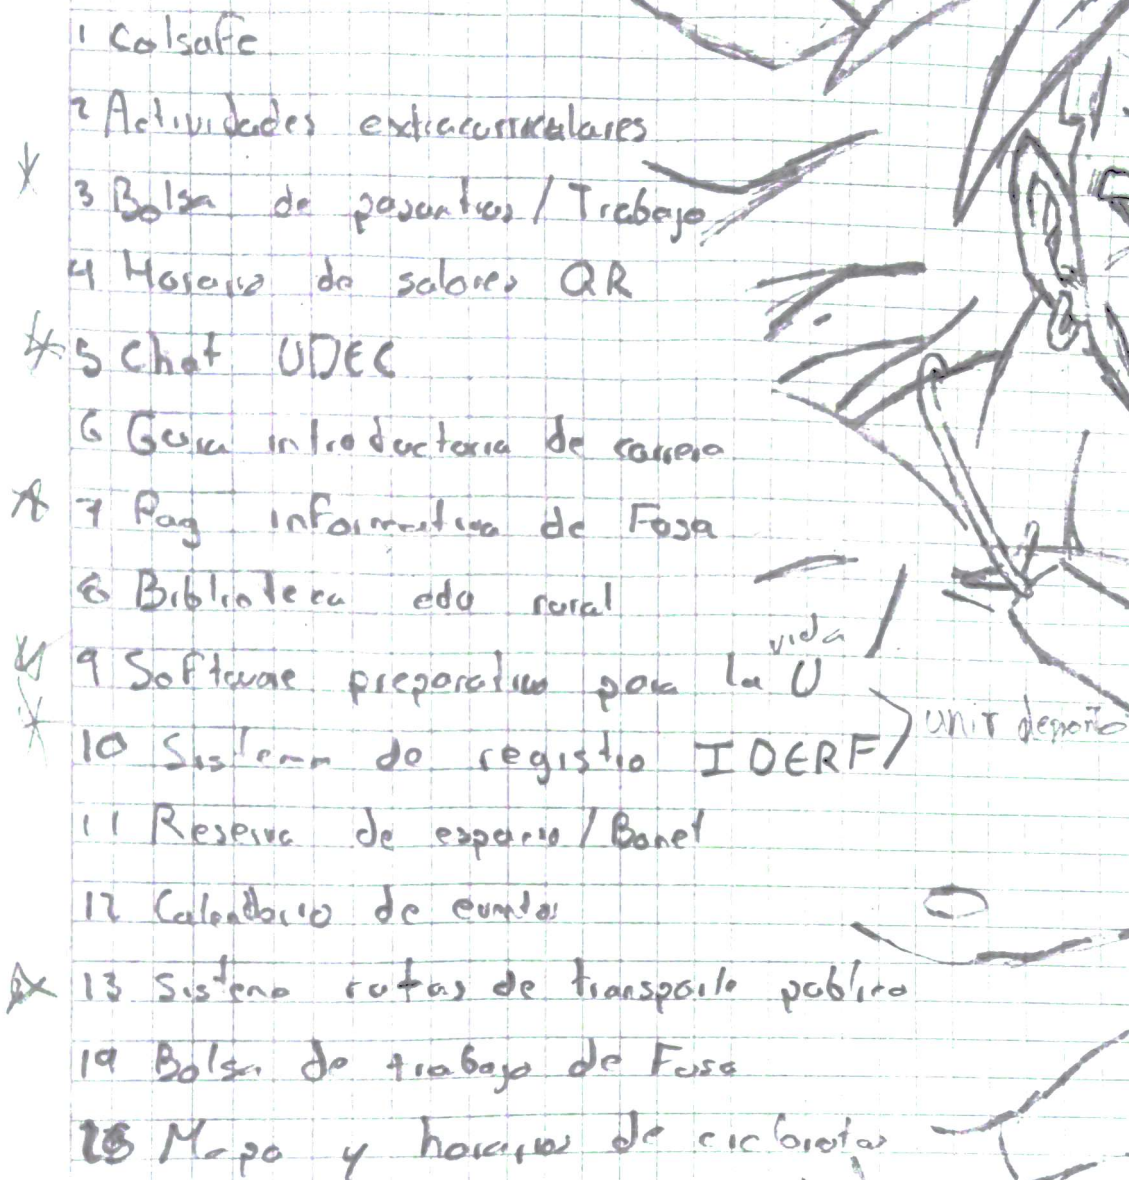 1 Colsafe
2 Actividades extracurriculares
3 Bolsa de pasantias / Trabajo
4 Horario de salones QR
5 Chat UDEC
6 Guia introductoria de carrera
7 Pag informativa de Fusa
8 Biblioteca edu rural
vida
9 Software preparativo para la U
unir deporte
10 Sistema de registro IDERF
11 Reserva de espacio / Banet
12 Calendario de eventos
13 Sistema rutas de transporte publico
14 Bolsa de trabajo de Fusa
15 Mapa y horarios de ciclorutas